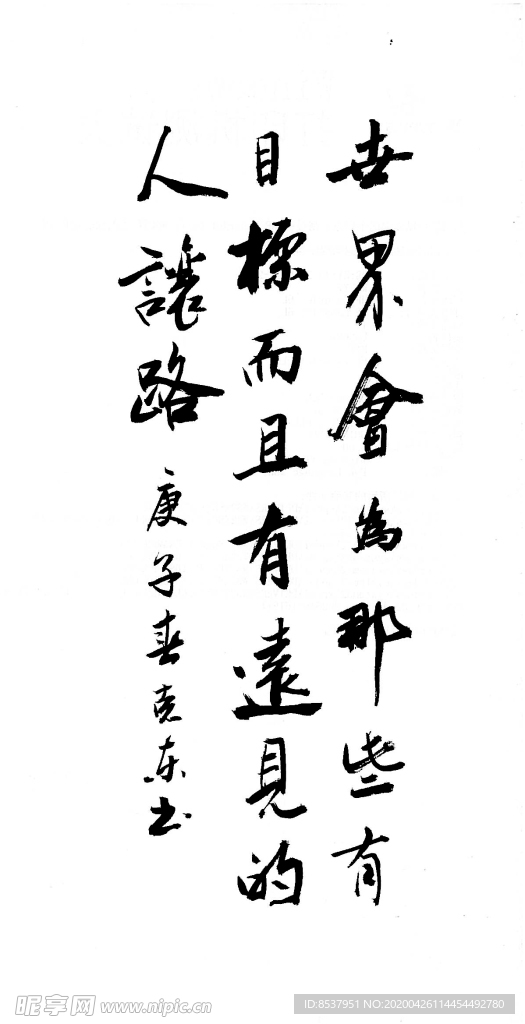 世界會為那些有
目標而且有遠見的
人讓路
庚子春克东书
昵享网 www.nipic.cn
ID:8537951 NO:20200426114454492780